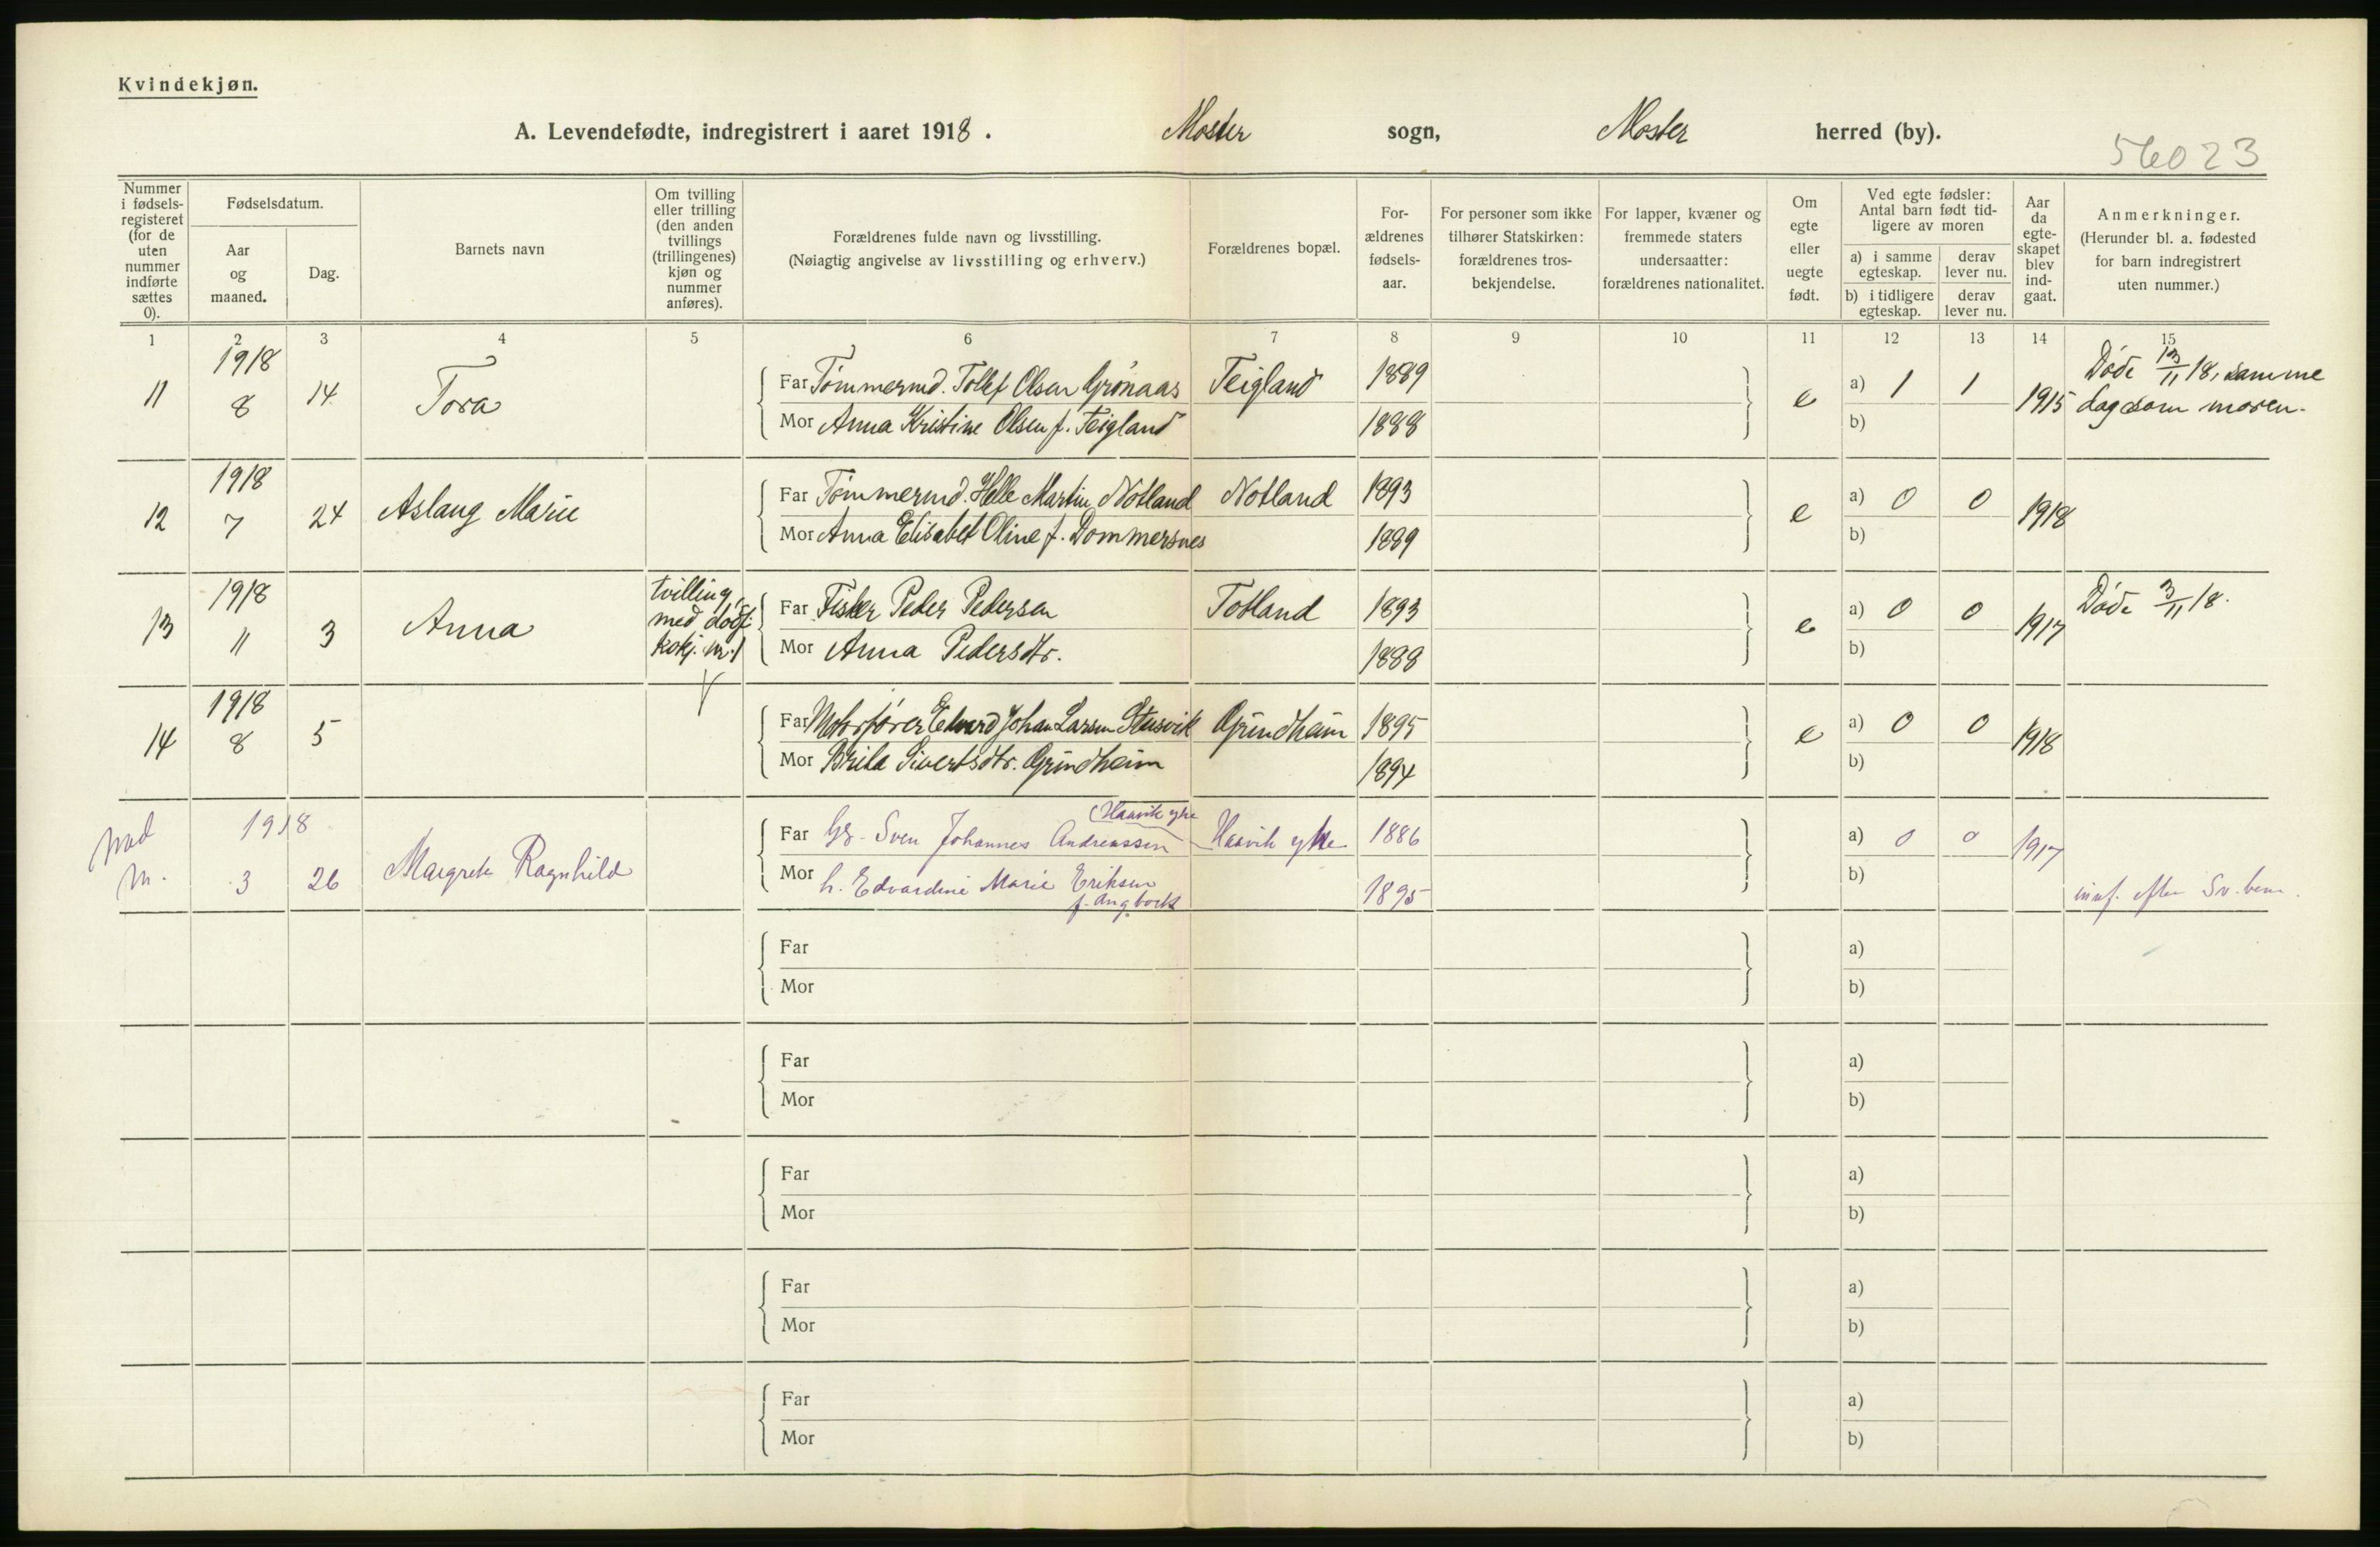 Kvindekjøn.
A. Levendefødte, indregistrert i aaret 1918. Moster sogn, Moster herred (by).
56023
Nummer i fødselsregisteret (for de uten nummer indførte sættes 0).
Fødselsdatum.
Aar og maaned.
Dag.
Barnets navn
Om tvilling eller trilling (den anden tvillings (trillingenes) kjøn og nummer anføres).
Forældrenes fulde navn og livsstilling.
(Nøiagtig angivelse av livsstilling og erhverv.)
Forældrenes bopæl.
Forældrenes fødselsaar.
For personer som ikke tilhører Statskirken: forældrenes trosbekjendelse.
For lapper, kvæner og fremmede staters undersaatter: forældrenes nationalitet.
Om egte eller uegte født.
Ved egte fødsler: Antal barn født tidligere av moren
a) i samme egteskap.
derav lever nu.
b) i tidligere egteskap.
derav lever nu.
Aar da egteskapet blev indgaat.
Anmerkninger.
(Herunder bl. a. fødested for barn indregistrert uten nummer.)
1 2 3 4 5 6 7 8 9 10 11 12 13 14 15
11 1918 8 14 Tora
Far Tømmermd. Tollef Olsen Grønaas Teigland 1889
Mor Anna Kristine Olsen f. Teigland 1888
e a) 1 1 b) 1915
Døde 13/11 18, samme
dag som moren.
12 1918 7 24 Aslaug Marie
Far Tømmermd. Helle Martin Notland Notland 1893
Mor Anna Elisabet Oline f. Dommersnes 1889
e a) 0 0 b) 1918
13 1918 11 3 Anna
tvilling,
med dødf.
kvkj. nr. 1
Far Fisker Peder Pedersen Totland 1893
Mor Anna Pedersdtr. 1888
e a) 0 0 b) 1917
Døde 3/11 18.
14 1918 8 5
Far Motorfører Edvard Johan Larsen Stusvik Grindheim 1895
Mor Brita Sivertsdtr. Grindheim 1894
e a) 0 0 b) 1918
1918 3 26 Margrete Ragnhild
(Haavik ytre
Far Sven Johannes Andreassen Haavik ytre 1886
Mor h. Edvardine Marie Eriksen
1895
a) 0 0 b) 1917
efter Sv. bem.
Far
Mor
a)
b)
Far
Mor
a)
b)
Far
Mor
a)
b)
Far
Mor
a)
b)
Far
Mor
a)
b)